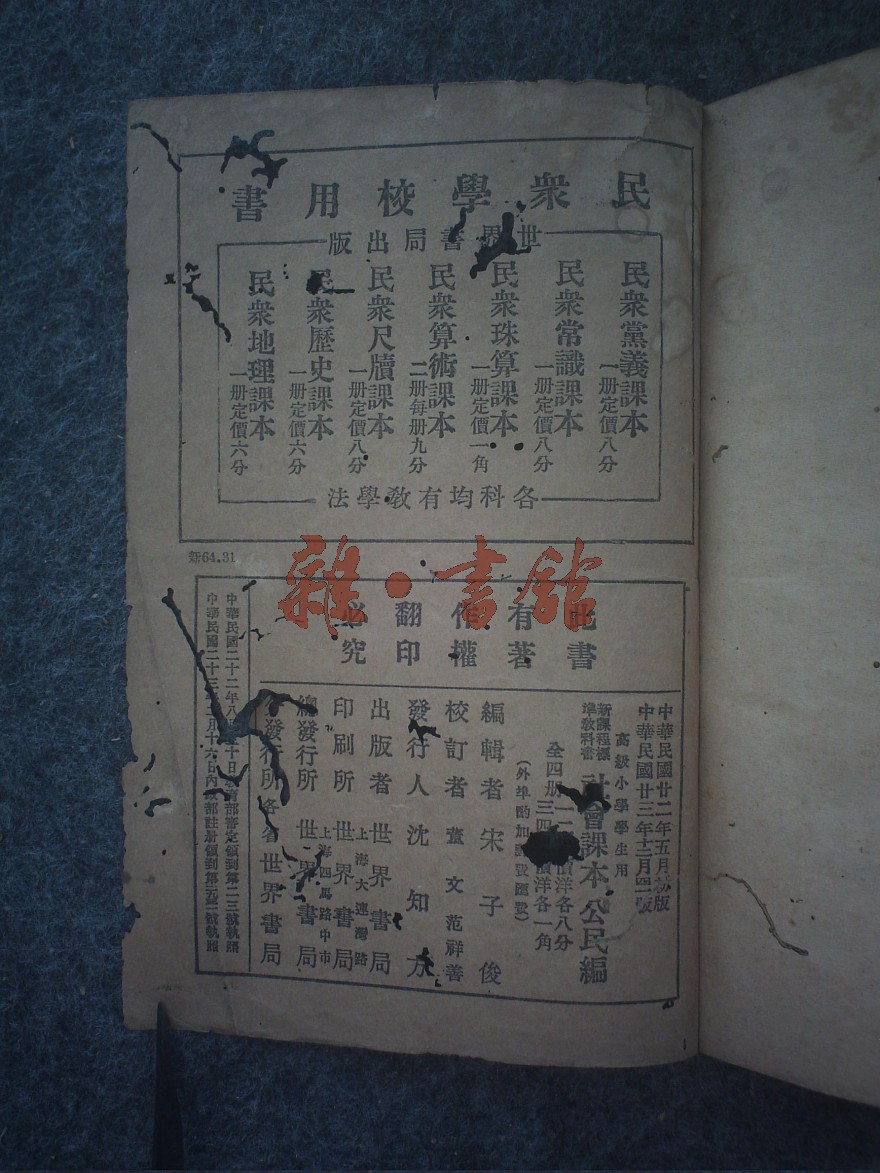 民衆學校用書
世界書局出版
民衆黨義課本 一册定價八分
民衆常識課本 一册定價八分
民衆珠算課本 一册定價一角
民衆算術課本 二册每册九分
民衆尺牘課本 一册定價八分
民衆歷史課本 一册定價六分
民衆地理課本 一册定價六分
各科均有教學法
新64.31
雜·書館
此書
有著
作權
翻印
必究
中華民國廿二年五月初版
中華民國廿三年十二月四二版
高級小學學生用
新課程標準教科書 社會課本 公民編
全四册 一二 價洋各八分
三四 價洋各一角
(外埠酌加 費匯費)
編輯者 宋子俊
校訂者 董文 范祥善
發行人 沈知方
出版者 世界書局
印刷所 上海大連灣路 世界書局
總發行所 上海四馬路中市 世界書局
發行所 各省世界書局
中華民國二十二年八月 十日教育部審定領到第二三號執照
中華民國二十三年二月十六日內政部註册領到第 號執照
1